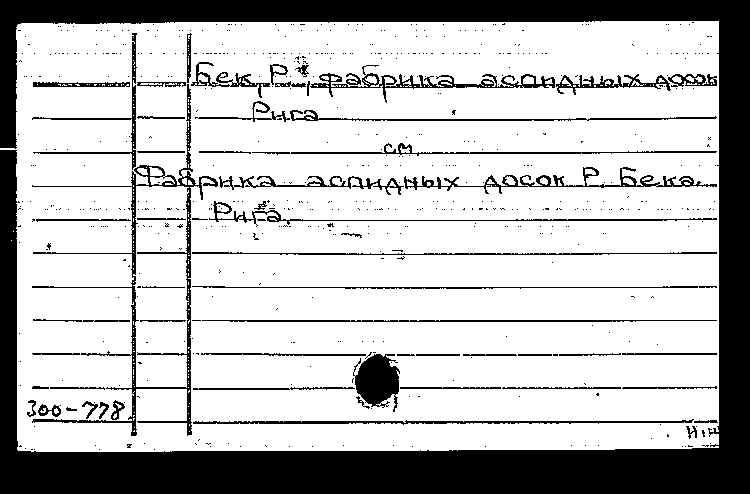 Бек, Р., фабрика аспидных досок
Рига
см.
Фабрика аспидных досок Р. Бека.
Рига.
300-778.